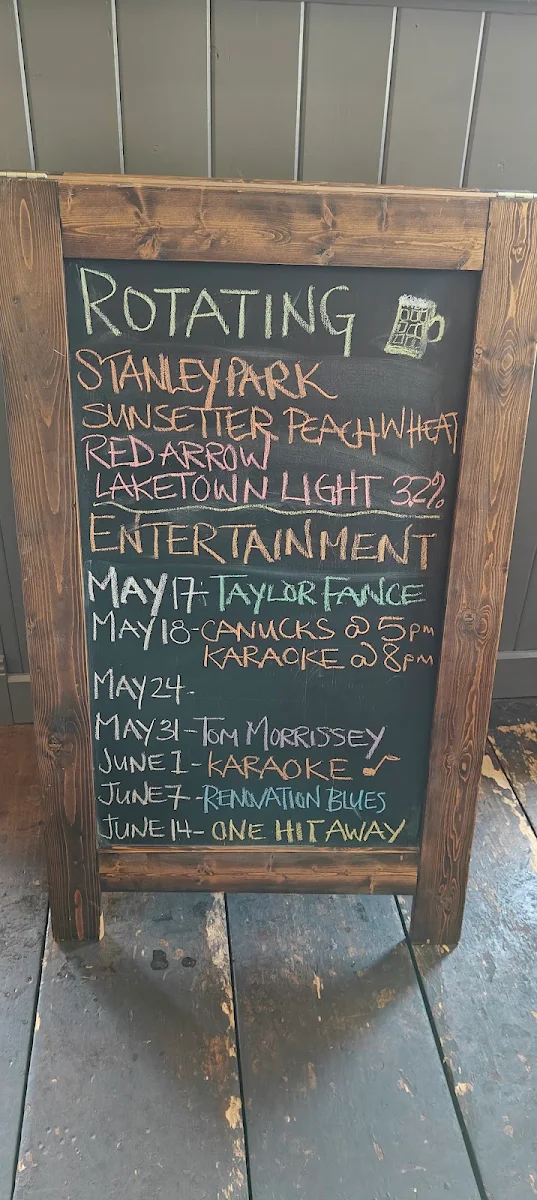 ROTATING
STANLEY PARK
SUNSETTER PEACH WHEAT
RED ARROW
LAKETOWN LIGHT 3.2%
ENTERTAINMENT
MAY 17- TAYLOR FANCE
MAY 18- CANUCKS @ 5pm
KARAOKE @ 8pm
MAY 24-
MAY 31- TOM MORRISSEY
JUNE 1- KARAOKE
JUNE 7- RENOVATION BLUES
JUNE 14- ONE HIT AWAY